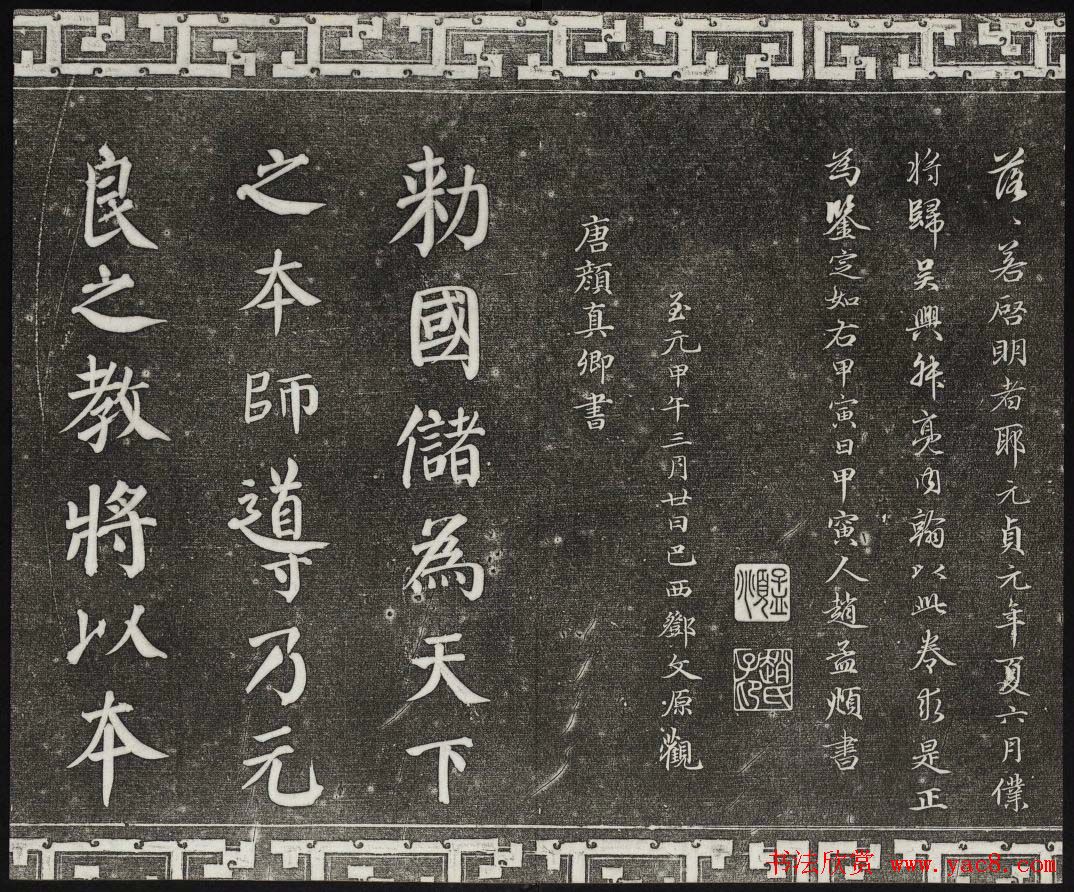 落〻若啓明者耶元貞元年夏六月僕
將歸吳興叔亮內翰以此卷求是正
為鑒定如右甲寅日甲寅人趙孟頫書
孟頫
趙氏子昂
至元甲午三月廿日巴西鄧文原觀
唐顏真卿書
勅國儲為天下
之本師導乃元
良之教將以本
书法欣赏 www.yac8.com